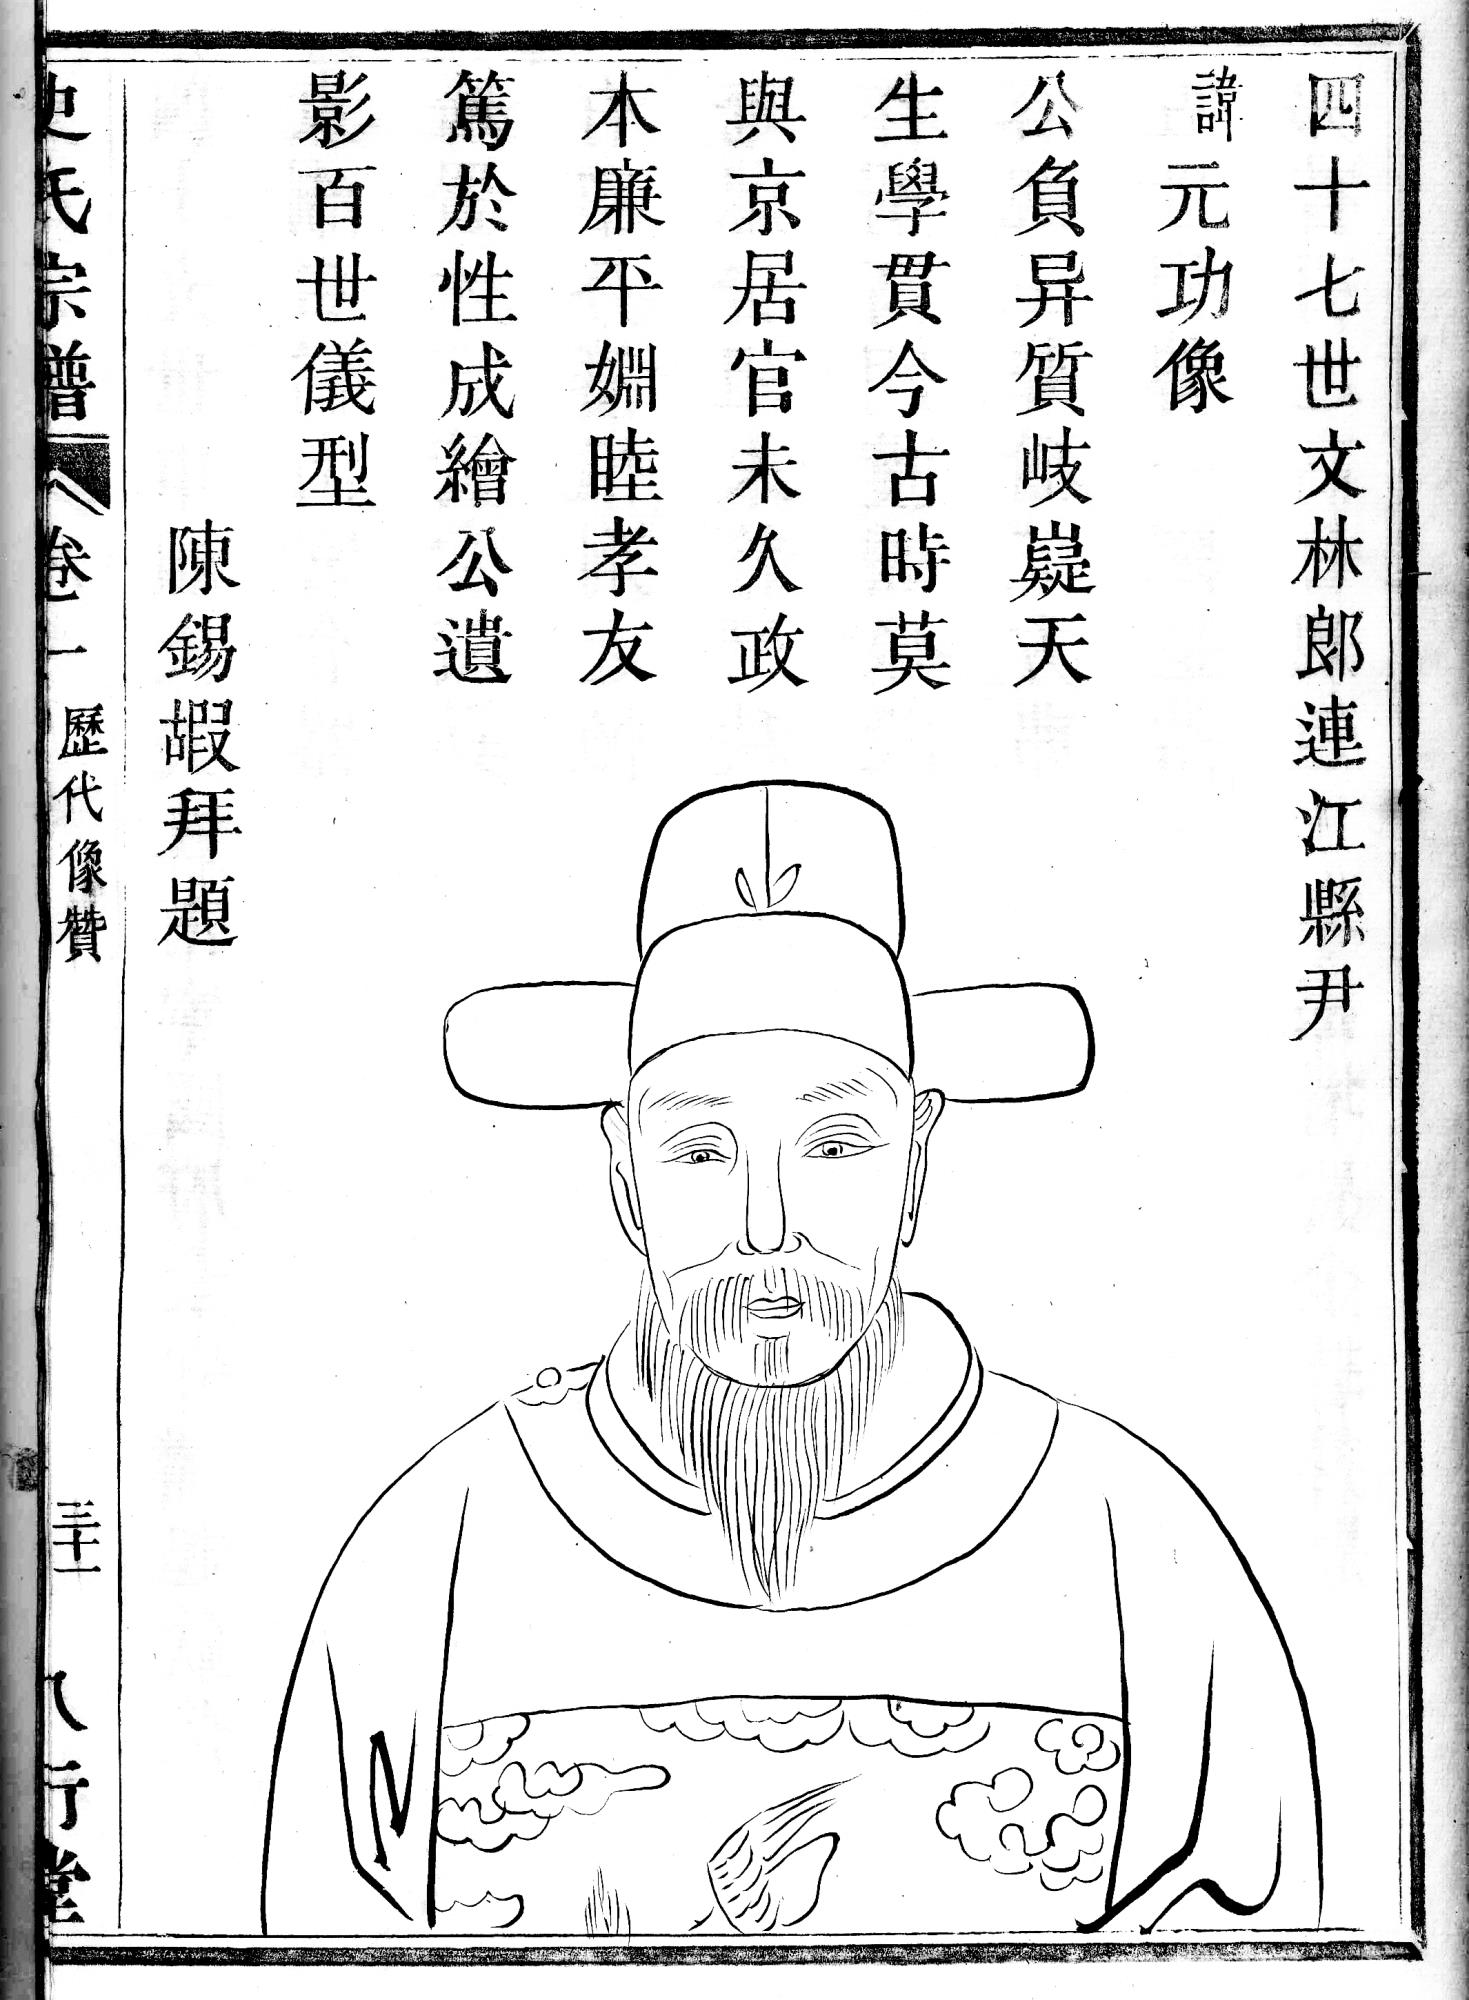 四十七世文林郎連江縣尹
諱元功像
公負异質岐嶷天
生學貫今古時莫
與京居官未久政
本廉平婣睦孝友
篤於性成繪公遺
影百世儀型
陳錫嘏拜題
史氏宗譜 卷一 歷代像贊 三十一 八行堂